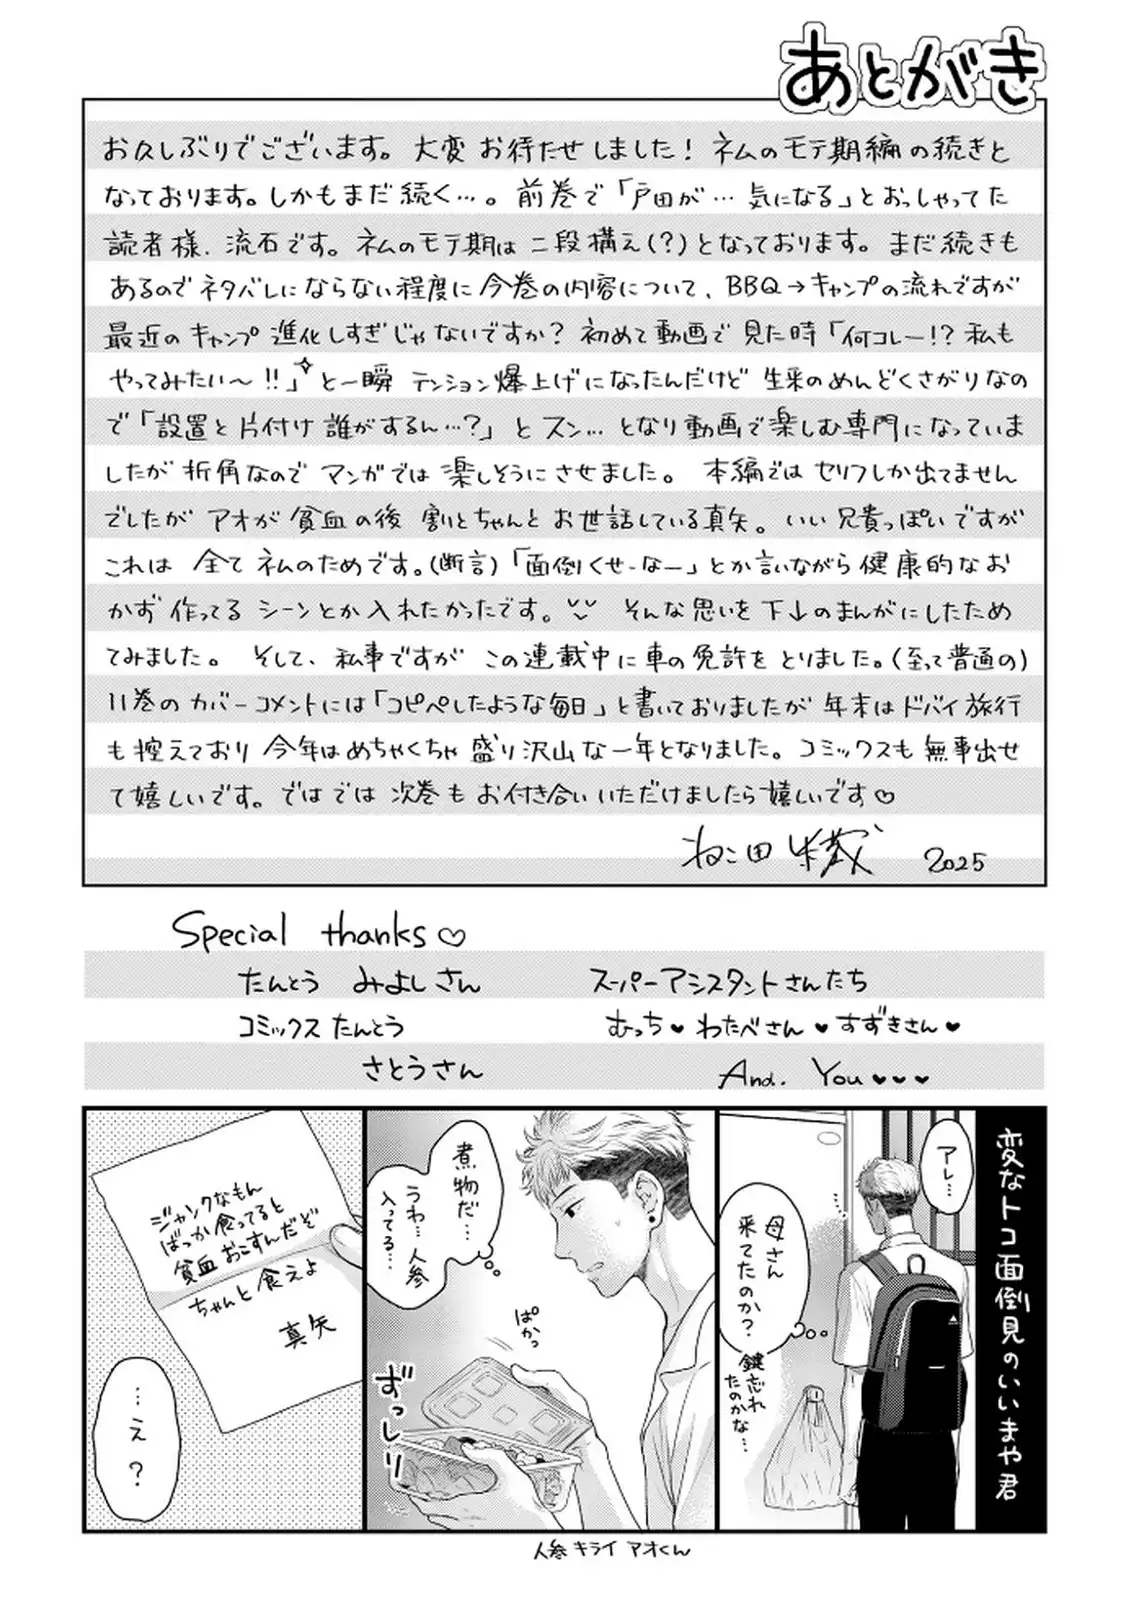 あとがき
お久しぶりでございます。大変お待たせしました！ネムのモテ期編の続きと
なっております。しかもまだ続く…。前巻で「戸田が…気になる」とおっしゃってた
読者様、流石です。ネムのモテ期は二段構え(？)となっております。まだ続きも
あるのでネタバレにならない程度に今巻の内容について、BBQ→キャンプの流れですが
最近のキャンプ進化しすぎじゃないですか？初めて動画で見た時「何コレー!?私も
やってみたい〜!!」と一瞬テンション爆上げになったんだけど生来のめんどくさがりなの
で「設置と片付け誰がするん…？」とスン…となり動画で楽しむ専門になっていま
したが折角なのでマンガでは楽しそうにさせました。本編ではセリフしか出てません
でしたがアオが貧血の後割とちゃんとお世話している真矢。いい兄貴っぽいですが
これは全てネムのためです。(断言)「面倒くせーなー」とか言いながら健康的なお
かず作ってるシーンとか入れたかったです。そんな思いを下↓のまんがにしたため
てみました。そして、私事ですがこの連載中に車の免許をとりました。(至って普通の)
11巻のカバーコメントには「コピペしたような毎日」と書いておりましたが年末はドバイ旅行
も控えており今年はめちゃくちゃ盛り沢山な一年となりました。コミックスも無事出せ
て嬉しいです。ではでは次巻もお付き合いいただけましたら嬉しいです♡
ねこ田 2025
Special thanks♡
たんとう みよしさん
コミックスたんとう
さとうさん
スーパーアシスタントさんたち
むっち♥わたべさん♥すずきさん♥
And. You♥♥♥
変なトコ面倒見のいいまや君
アレ…
母さん
来てたのか？
鍵忘れ
たのかな…
煮物だ…
うわ…人参
入ってる…
ぱかっ
ずっしり
ジャンクなもん
ばっか食ってると
貧血おこすんだぞ
ちゃんと食えよ
真矢
…え？
人参キライアオくん